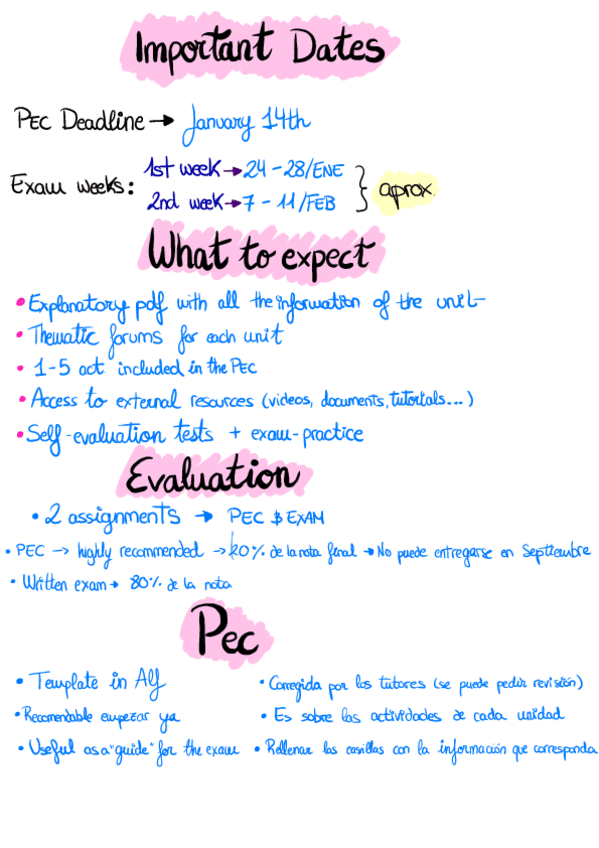 Important Dates
PEC Deadline → January 14th
Exam weeks: 1st week → 24 - 28/ENE
2nd week → 7 - 11/FEB
aprox.
What to expect
• Explanatory pdf with all the information of the unit
• Thematic forums for each unit
• 1-5 act included in the PEC
• Access to external resources (videos, documents, tutorials...)
• Self-evaluation tests + exam-practice
Evaluation
• 2 assignments → PEC & EXAM
• PEC → highly recommended → 20% de la nota final → No puede entregarse en Septiembre
• Written exam → 80% de la nota
Pec
• Template in Alf
• Recomendable empezar ya
• Useful as a "guide" for the exam
• Corregida por los tutores (se puede pedir revisión)
• Es sobre las actividades de cada unidad
• Rellenar las casillas con la información que corresponda